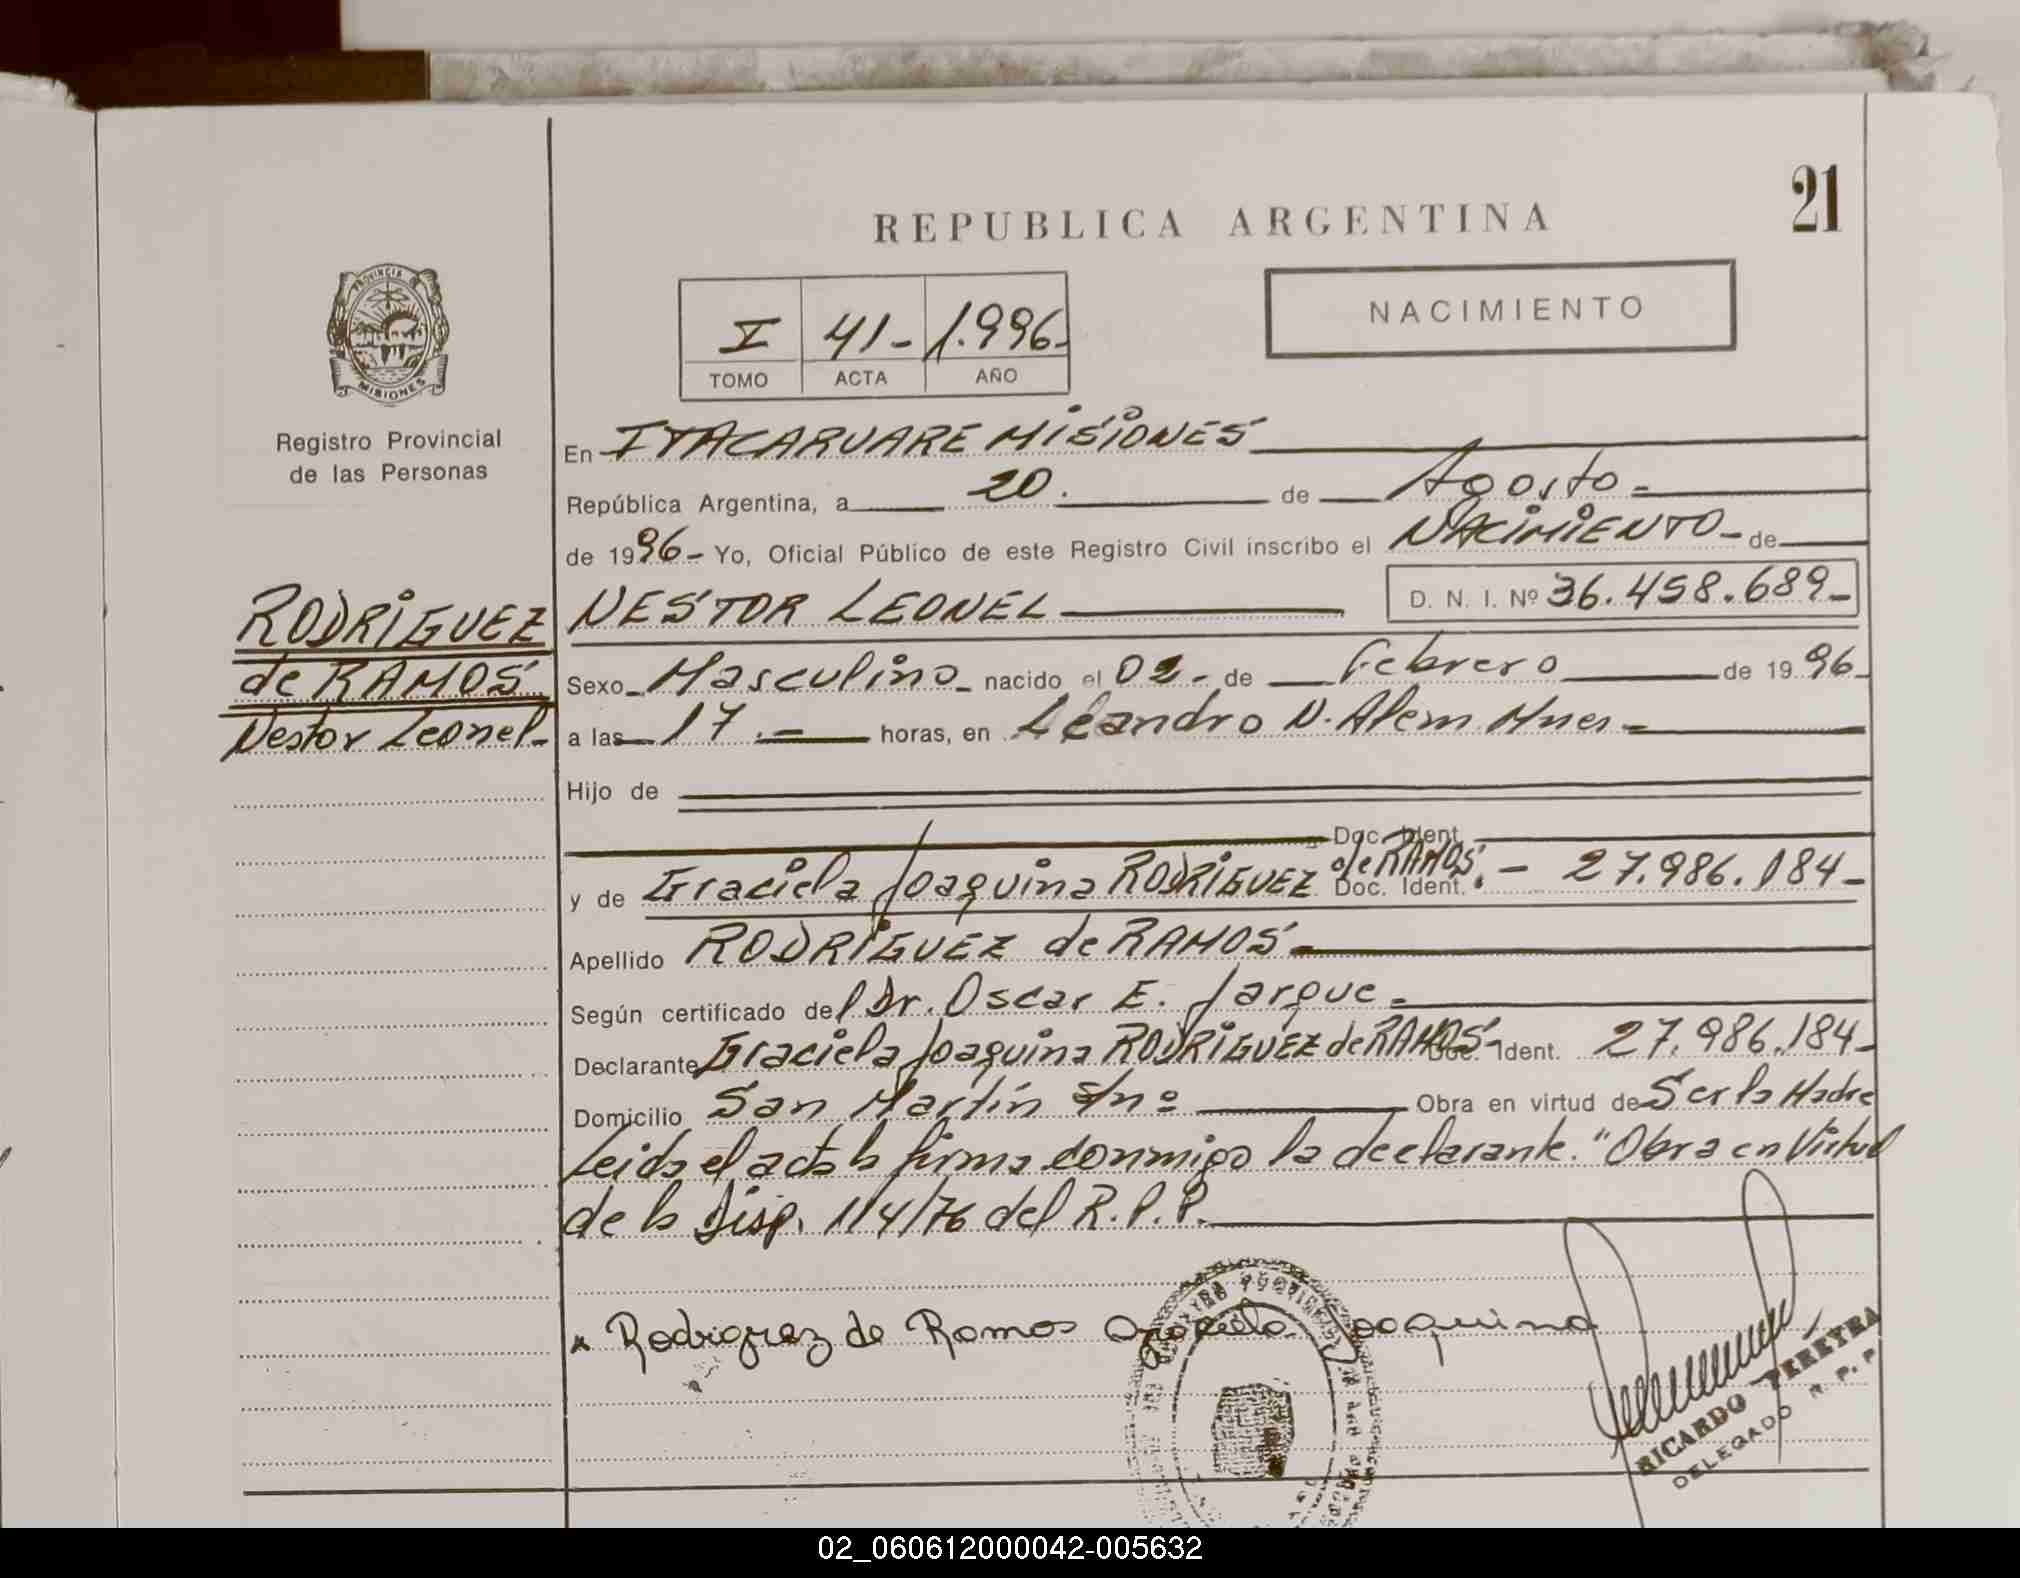 21
REPUBLICA ARGENTINA
NACIMIENTO
I 41- 1.996-
TOMO ACTA AÑO
PROVINCIA
MISIONES
Registro Provincial
de las Personas
RODRIGUEZ
de RAMOS
Nestor Leonel-
En ITACARUARE MISIONES
República Argentina, a 20. de Agosto-
de 1996- Yo, Oficial Público de este Registro Civil inscribo el NACIMIENTO- de
NESTOR LEONEL D. N. I. Nº 36.458.689-
Sexo- Masculino- nacido el 02- de Febrero de 1996-
a las 17.- horas, en Leandro N. Alem Mnes-
Hijo de
Doc. Ident.
y de Graciela Joaquina RODRIGUEZ de RAMOS.- Doc. Ident. 27.986.184-
Apellido RODRIGUEZ de RAMOS-
Según certificado del Dr. Oscar E. Jarque-
Declarante Graciela Joaquina RODRIGUEZ de RAMOS- Doc. Ident. 27.986.184-
Domicilio San Martín s/nº Obra en virtud de Ser la Madre
Leida el acta la firma conmigo la declarante. "Obra en Virtud
de la Disp. 114/76 del R.P.P.
x Rodriguez de Ramos Graciela Joaquina
RICARDO PEREYRA
DELEGADO R. P. P.
02_060612000042-005632